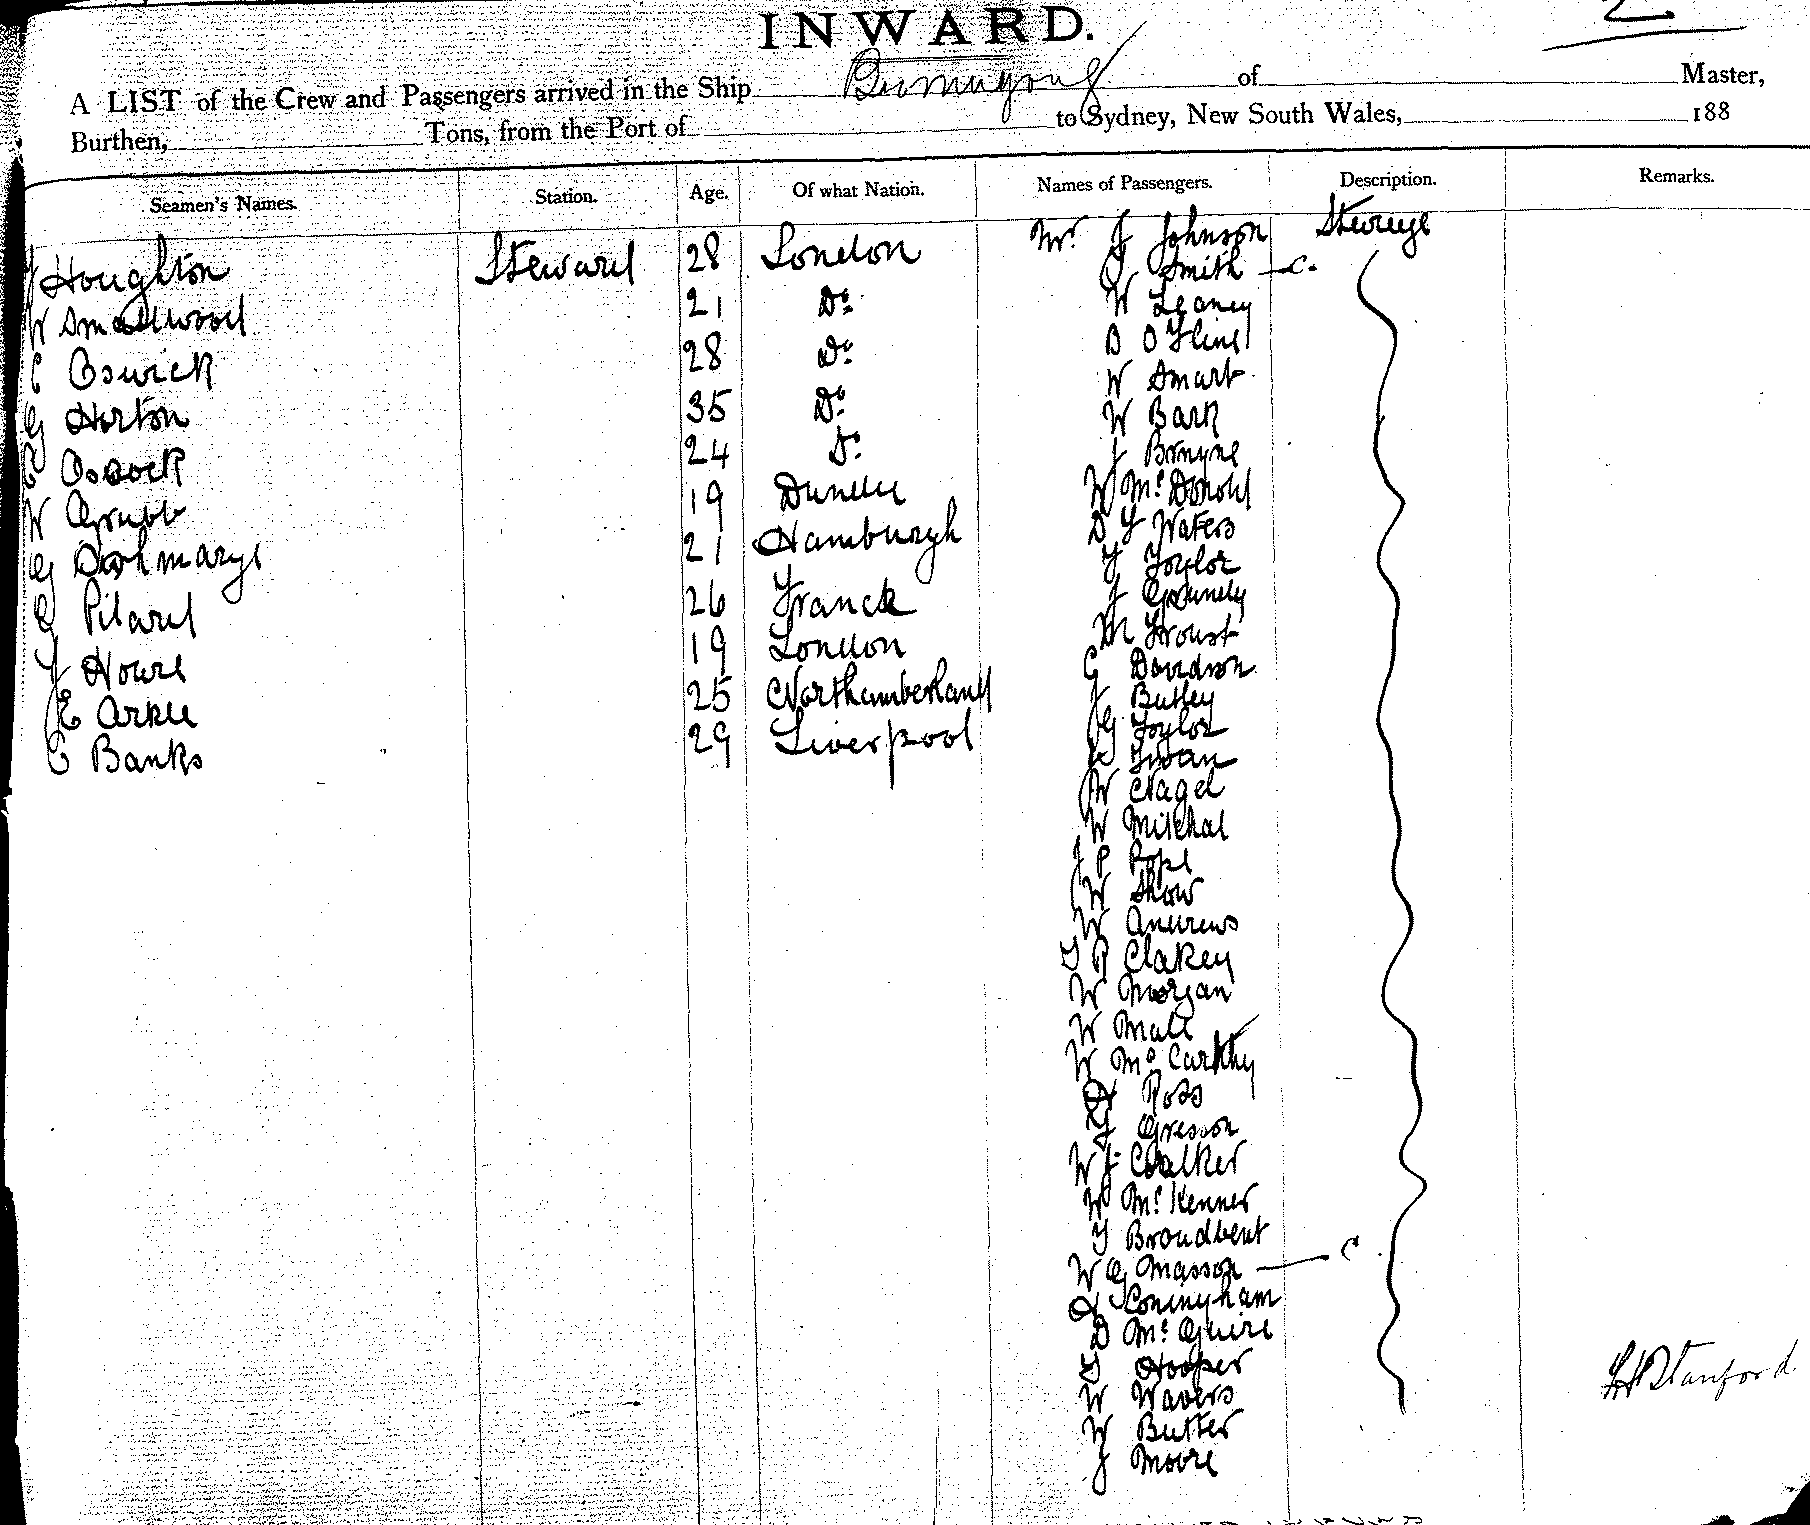 2
INWARD.
A LIST of the Crew and Passengers arrived in the Ship Burrumgong of Master,
Burthen, Tons, from the Port of to Sydney, New South Wales, 188
Seamen's Names. Station. Age. Of what Nation. Names of Passengers. Description. Remarks.
J Houghton Steward 28 London
W Smallwood 21 Do
C Oswick 28 Do
G Horton 35 Do
24 Do
W Grubb 19 Dundee
G 21 Hamburgh
G Pilard 26 France
J Howse 19 London
E Arkle 25 Northumberland
C Banks 29 Liverpool
Mr J Johnson Steerage
J Smith — C.
W Leaney
B O'Fline
W Smart
W Bark
J
W McDonold
D F Waters
F Taylor
J Grundy
M Froust
G Davidson
J Butley
G Taylor
Swan
W Nagel
W Mitchal
J P Pope
W Show
W Andrews
T P Clakey
W Morgan
W Male
W McCarthy
Ross
J Gresson
W J Walker
W McKenner
T Broadbent
W G Masson — C
Coningham
D McGuire
T Hooper
W Wavers
W Butter
J Moore
Stanford